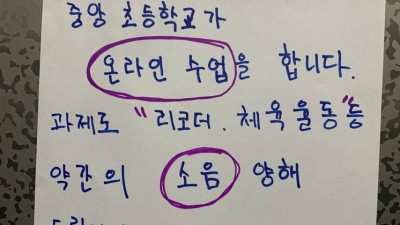 중앙 초등학교가
온라인 수업을 합니다.
과제도 "리코더. 체육율동"등
약간의 소음 양해